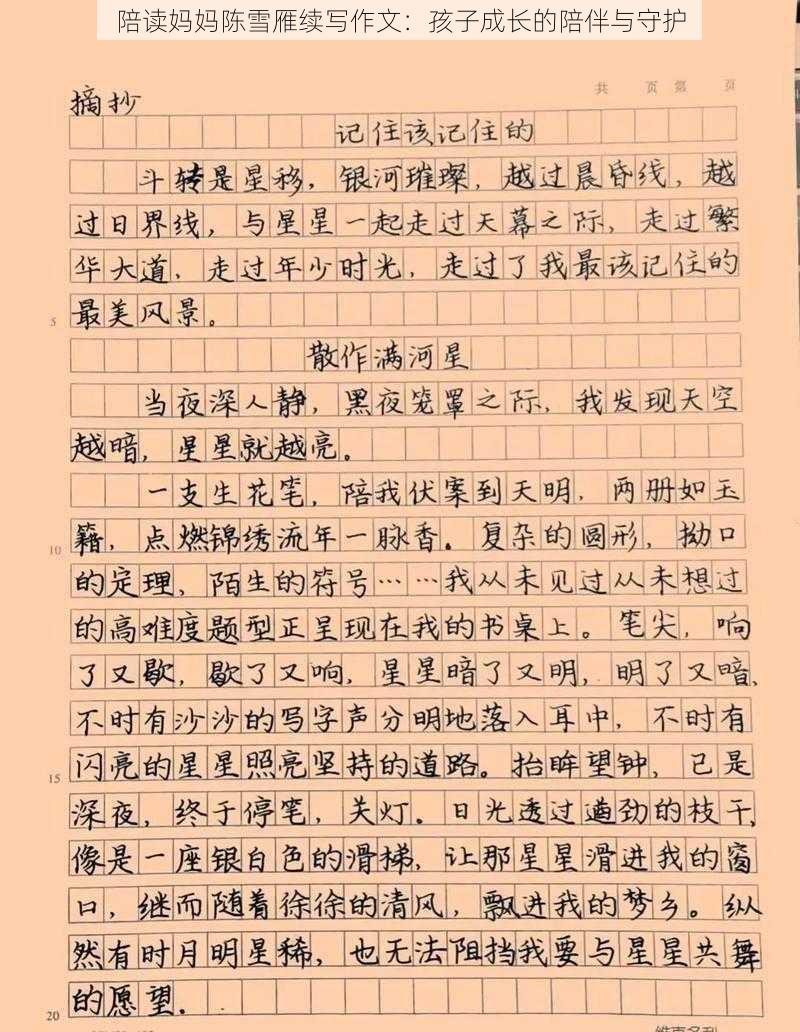 陪读妈妈陈雪雁续写作文：孩子成长的陪伴与守护
共 页 第 页
摘抄
记住该记住的
斗转是星移，银河璀璨，越过晨昏线，越
过日界线，与星星一起走过天幕之际，走过繁
华大道，走过年少时光，走过了我最该记住的
5 最美风景。
散作满河星
当夜深人静，黑夜笼罩之际，我发现天空
越暗，星星就越亮。
一支生花笔，陪我伏案到天明，两册如玉
10 籍，点燃锦绣流年一脉香。复杂的圆形，拗口
的定理，陌生的符号……我从未见过从未想过
的高难度题型正呈现在我的书桌上。笔尖，响
了又歇，歇了又响，星星暗了又明，明了又暗，
不时有沙沙的写字声分明地落入耳中，不时有
15 闪亮的星星照亮坚持的道路。抬眸望钟，已是
深夜，终于停笔，关灯。日光透过遒劲的枝干，
像是一座银白色的滑梯，让那星星滑进我的窗
口，继而随着徐徐的清风，飘进我的梦乡。纵
然有时月明星稀，也无法阻挡我要与星星共舞
20 的愿望．